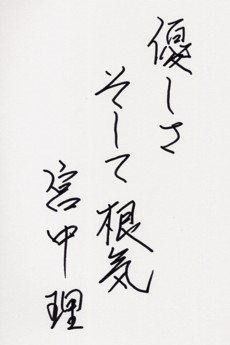 優しさ
そして根気
宮中理